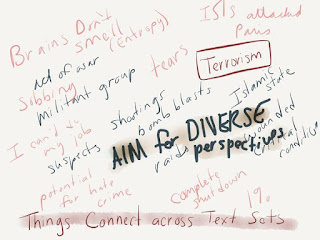 Brains Don't
smell
(Entropy)
ISIS attacked
Paris
act of war
Sobbing
tears
Terrorism
militant group
shootings
bomb blasts
Islamic
state
I can't do
my job
suspects
AIM for DIVERSE
perspectives
raids
wounded
critical
condition
potential
for hate
crime
complete
shutdown
1%
Things Connect across Text Sets